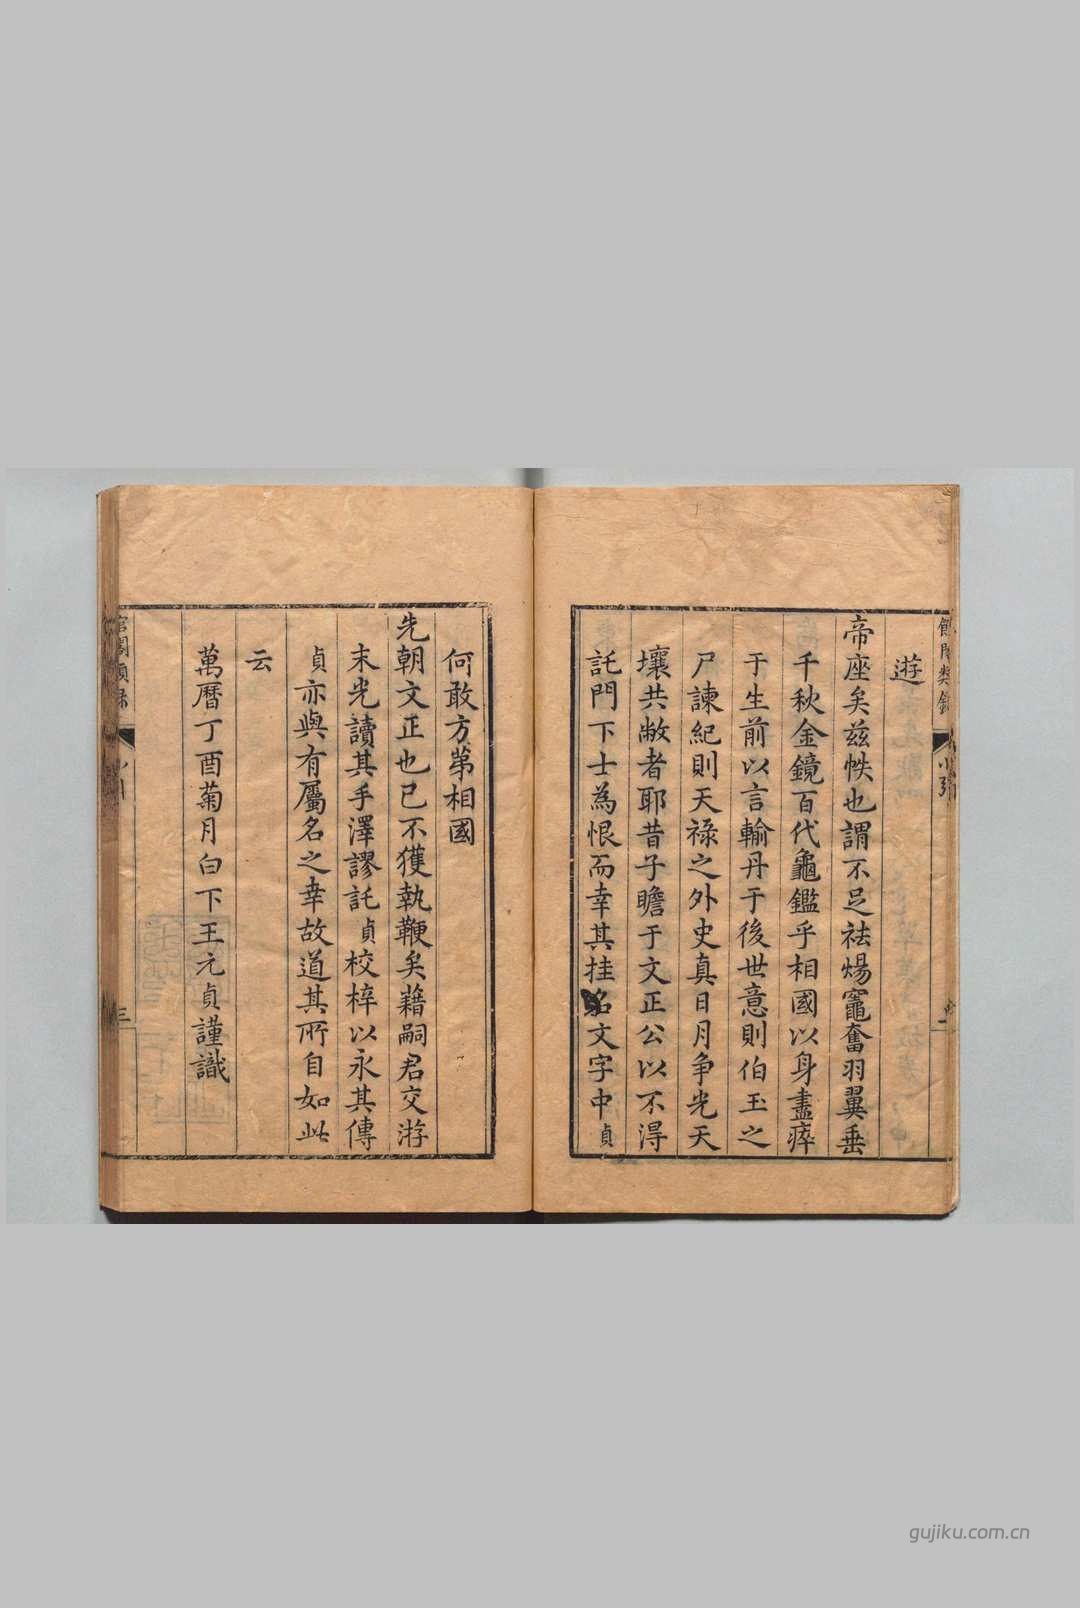 遊
帝座矣茲帙也謂不足祛煬竈奮羽翼垂
千秋金鏡百代龜鑑乎相國以身盡瘁
于生前以言輸丹于後世意則伯玉之
尸諫紀則天祿之外史真日月争光天
壤共敝者耶昔子瞻于文正公以不得
託門下士為恨而幸其挂名文字中貞
何敢方第相國
先朝文正也已不獲執鞭矣藉嗣君交游
末光讀其手澤謬託貞校梓以永其傳
貞亦與有屬名之幸故道其所自如此
云
萬曆丁酉菊月白下王元貞謹識
館閣類錄
小引
三
gujiku.com.cn